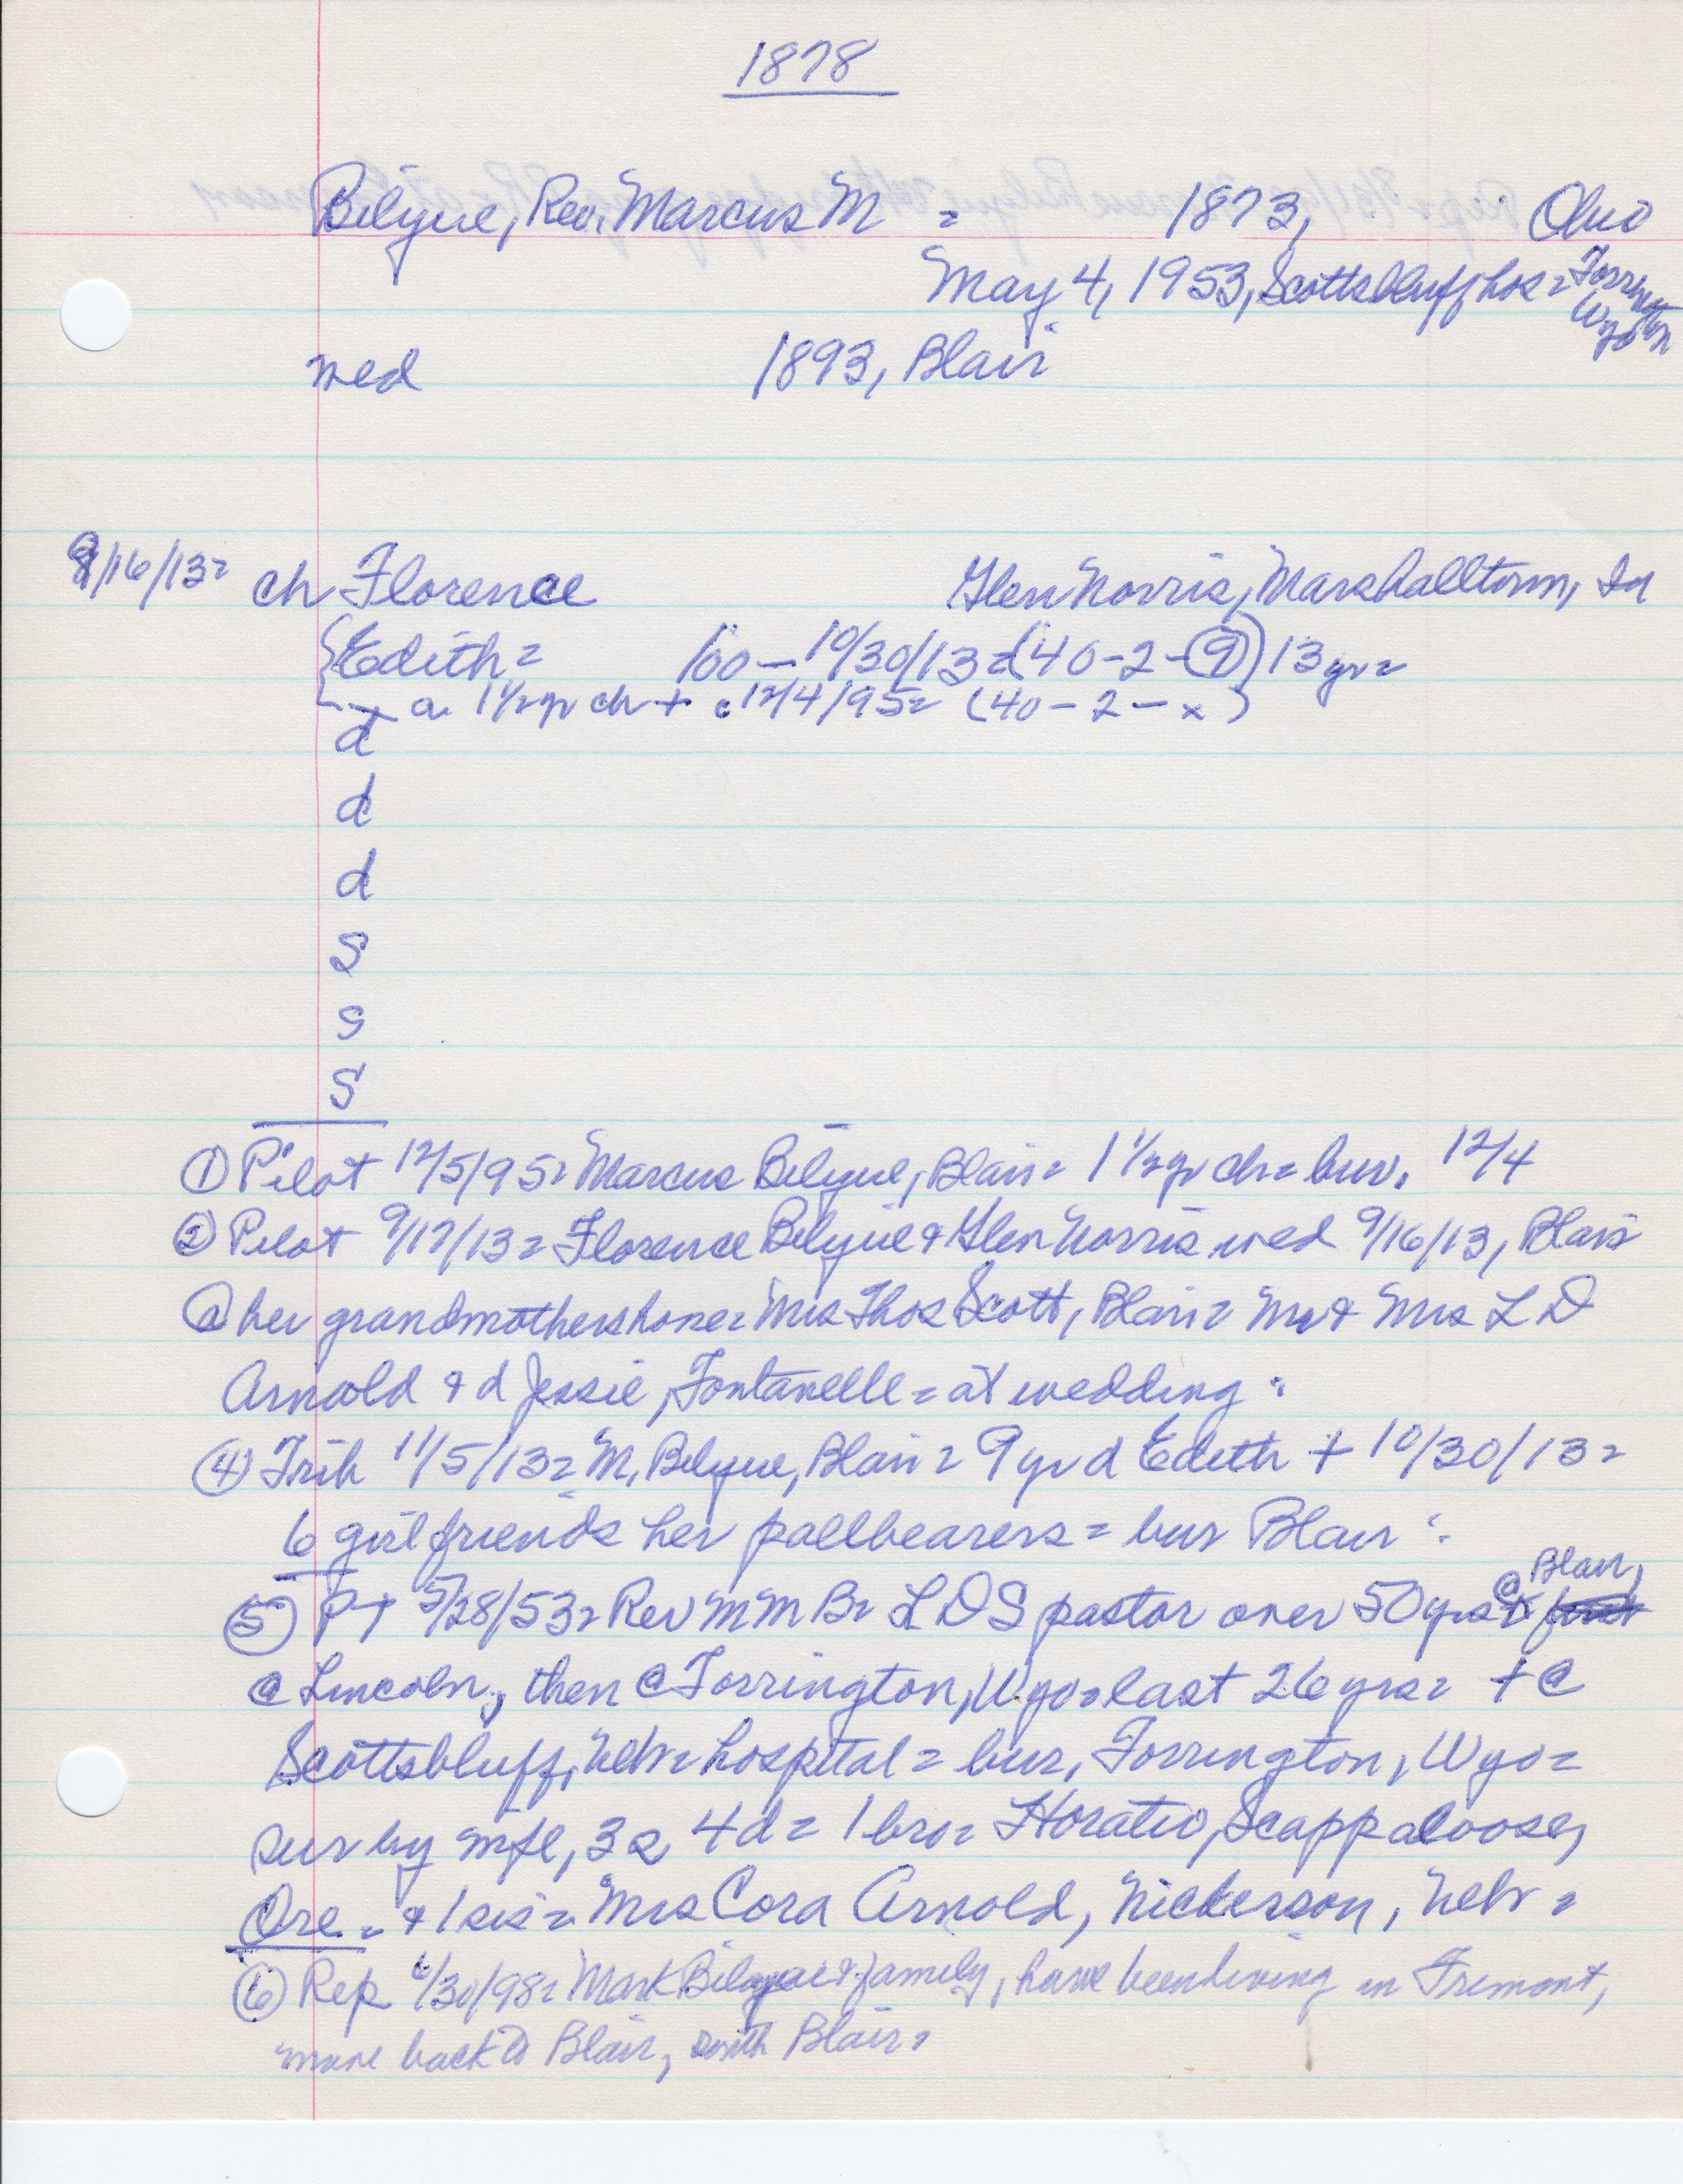 1878
Bilyue, Rev. Marcus M = 1873, Ohio
May 4, 1953, Scottsbluff hos = Torrington
Wyo
wed 1893, Blair
9/16/13= ch Florence Glen Norris, Marshalltown, Ia
Edith = '00 – 10/30/13 = (40-2-9) 13 yr =
a 1½ yr ch + c 12/4/95 = (40-2-x)
d
d
d
S
S
S
① Pilot 12/5/95 = Marcus Bilyue, Blair = 1 ½ yr ch = bur. 12/4
② Pilot 9/17/13 = Florence Bilyue & Glen Norris wed 9/16/13, Blair
@ her grandmothers home = Mrs Thos Scott, Blair = Mr & Mrs L D
Arnold & d Jessie, Fontanelle = at wedding :
④ Trib 11/5/13 = M. Bilyue, Blair = 9 yr d Edith + 10/30/13 =
6 girl friends her pallbearers = bur Blair :
⑤ PT 5/28/53 = Rev M M B = LDS pastor over 50 yrs @ Blair,
@ Lincoln, then @ Torrington, Wyo = last 26 yrs = + @
Scottsbluff, Nebr = hospital = bur, Torrington, Wyo =
sur by wife, 3 s 4 d = 1 bro = Horatio, Scappaloose,
Ore = & 1 sis = Mrs Cora Arnold, Nickerson, Nebr =
⑥ Rep 6/30/98 = Mark Bilyue & family, have been living in Fremont,
move back to Blair, south Blair =